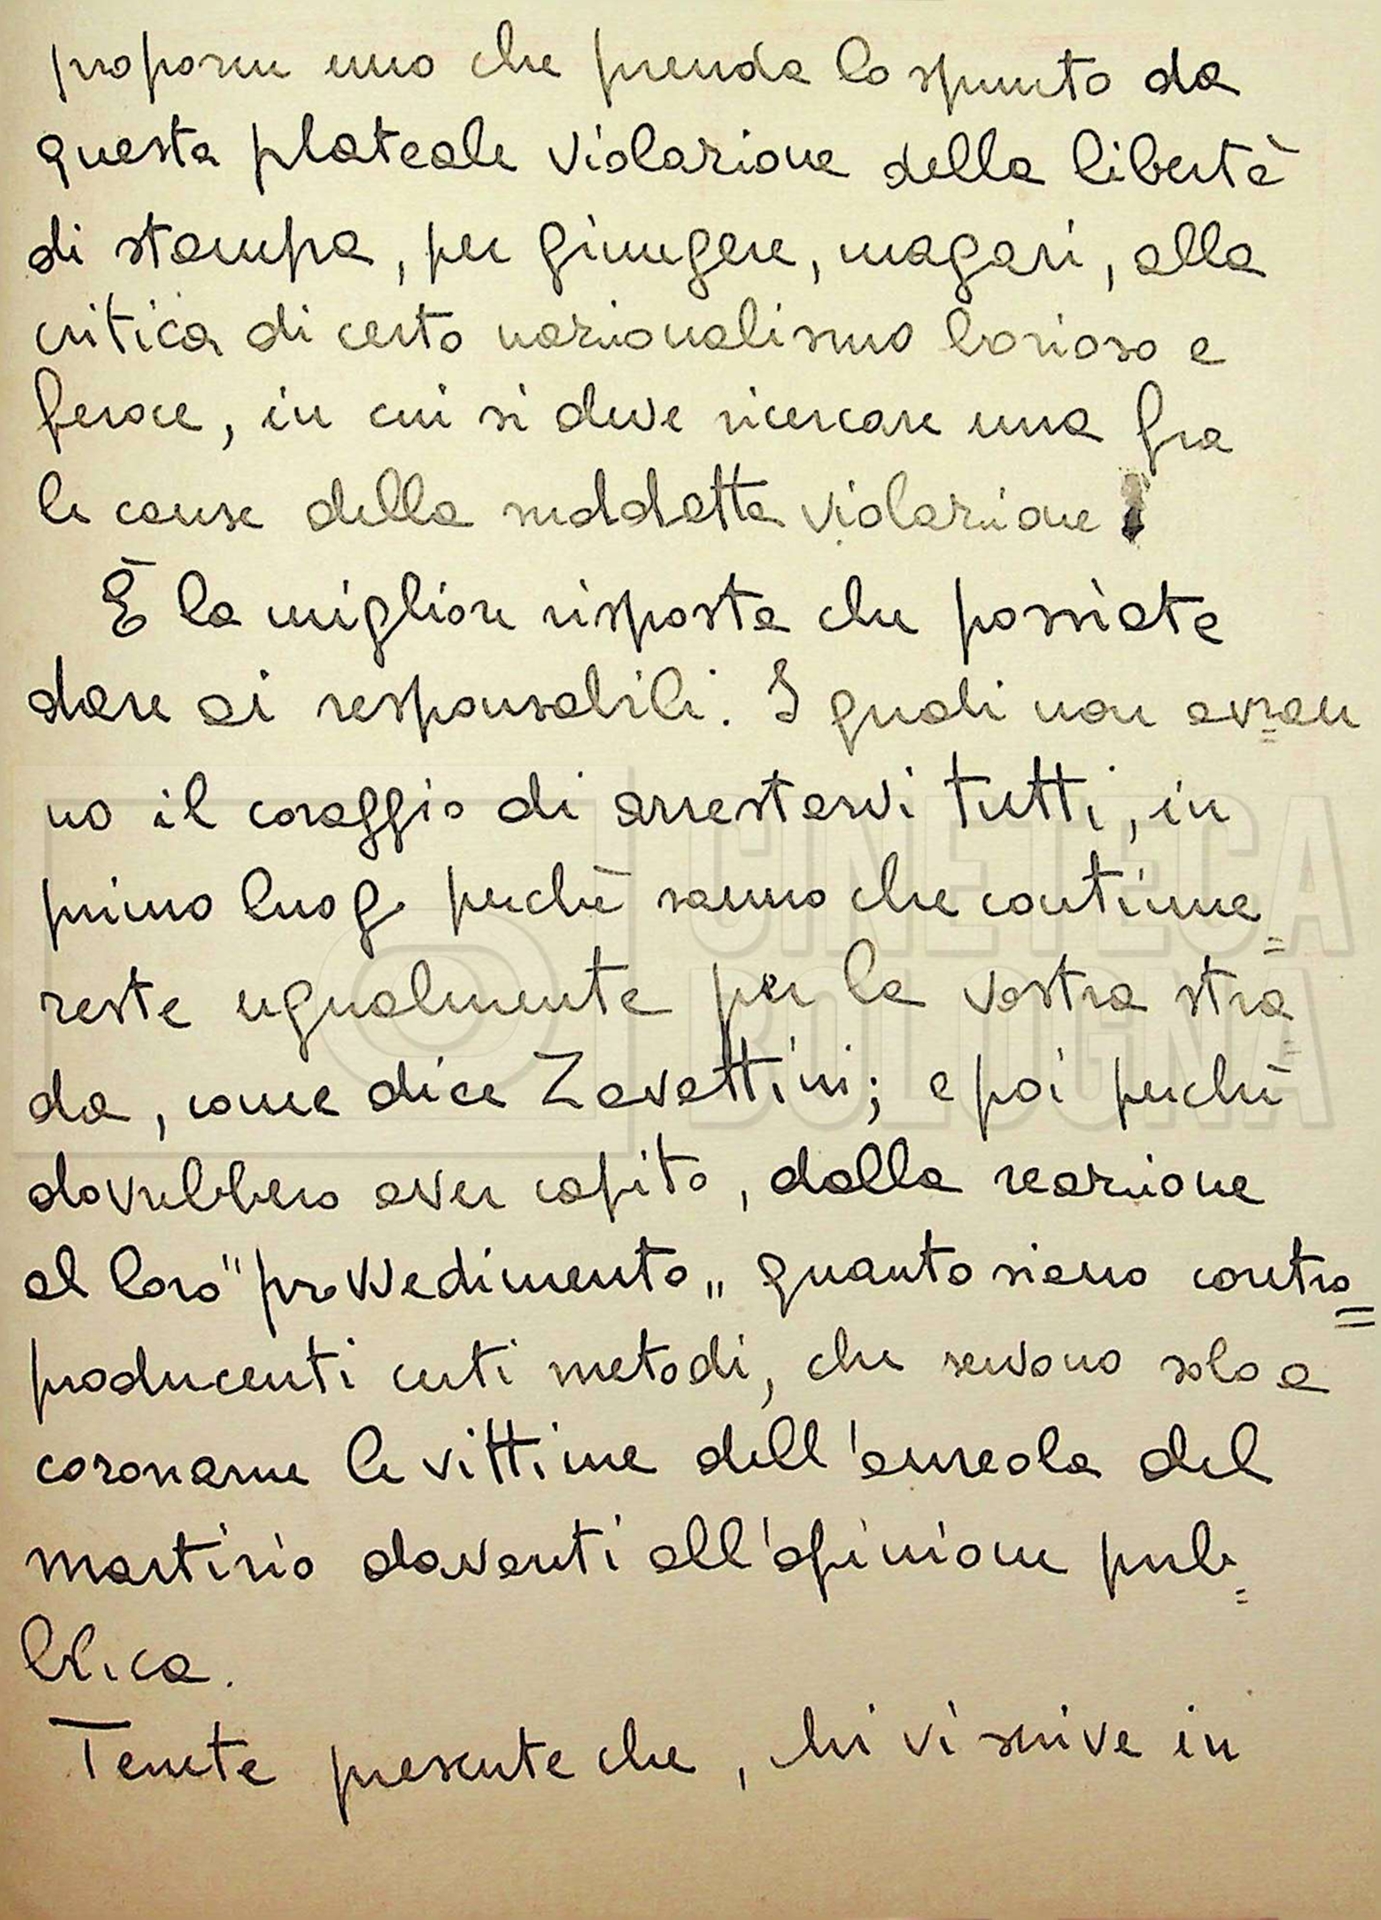 proporne uno che prenda lo spunto da
questa plateale violazione della libertà
di stampa, per giungere, magari, alla
critica di certo nazionalismo borioso e
feroce, in cui si deve ricercare una fra
le cause della suddetta violazione.
È la migliore risposta che possiate
dare ai responsabili. I quali non avran=
no il coraggio di arrestarvi tutti, in
primo luogo perchè sanno che continue=
reste ugualmente per la vostra stra=
da, come dice Zavattini; e poi perchè
dovrebbero aver capito, dalla reazione
al loro "provvedimento„ quanto siano contro=
producenti certi metodi, che servono solo a
coronarne le vittime dell'aureola del
martirio davanti all'opinione pub=
blica.
Tenete presente che, chi vi scrive in
CINETECA
BOLOGNA